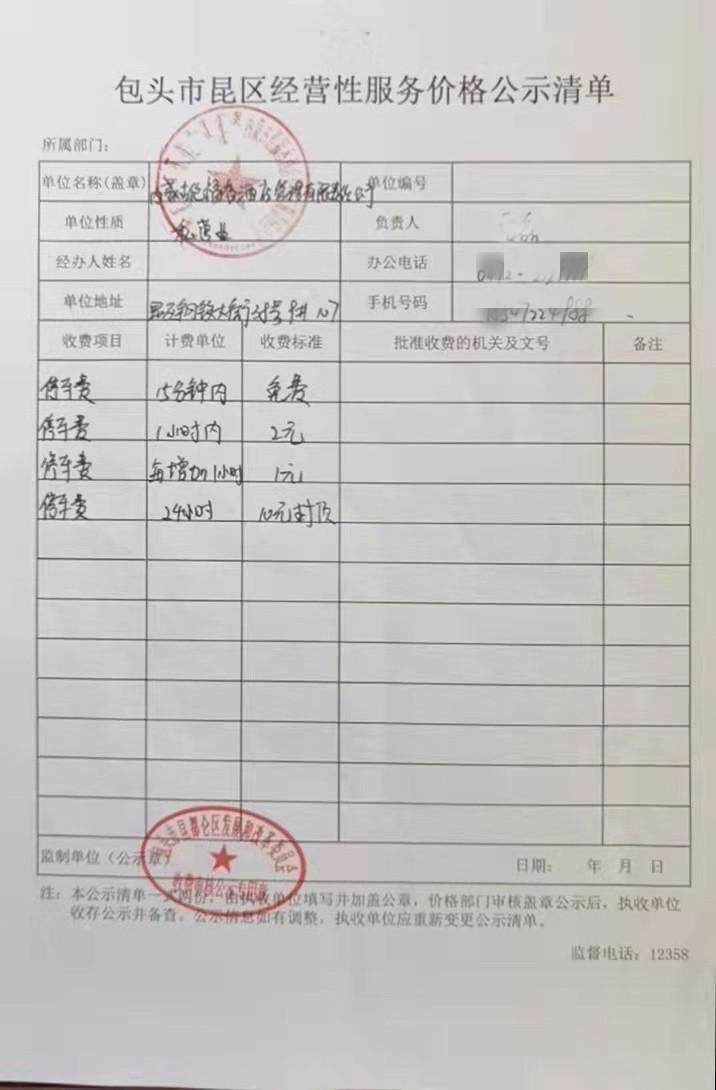 包头市昆区经营性服务价格公示清单
所属部门：
单位名称(盖章) 有限责任公司 单位编号
单位性质 负责人
经办人姓名 办公电话 0472-
单位地址 手机号码
收费项目 计费单位 收费标准 批准收费的机关及文号 备注
停车费 15分钟内 免费
停车费 1小时内 2元
停车费 每增加1小时 1元
停车费 24小时 10元封顶
包头市昆都仑区发展和改革委员会
监制单位（公示章） 日期： 年 月 日
注：本公示清单一式两份，由执收单位填写并加盖公章，价格部门审核盖章公示后，执收单位
收存公示并备查。公示信息如有调整，执收单位应重新变更公示清单。
监督电话：12358